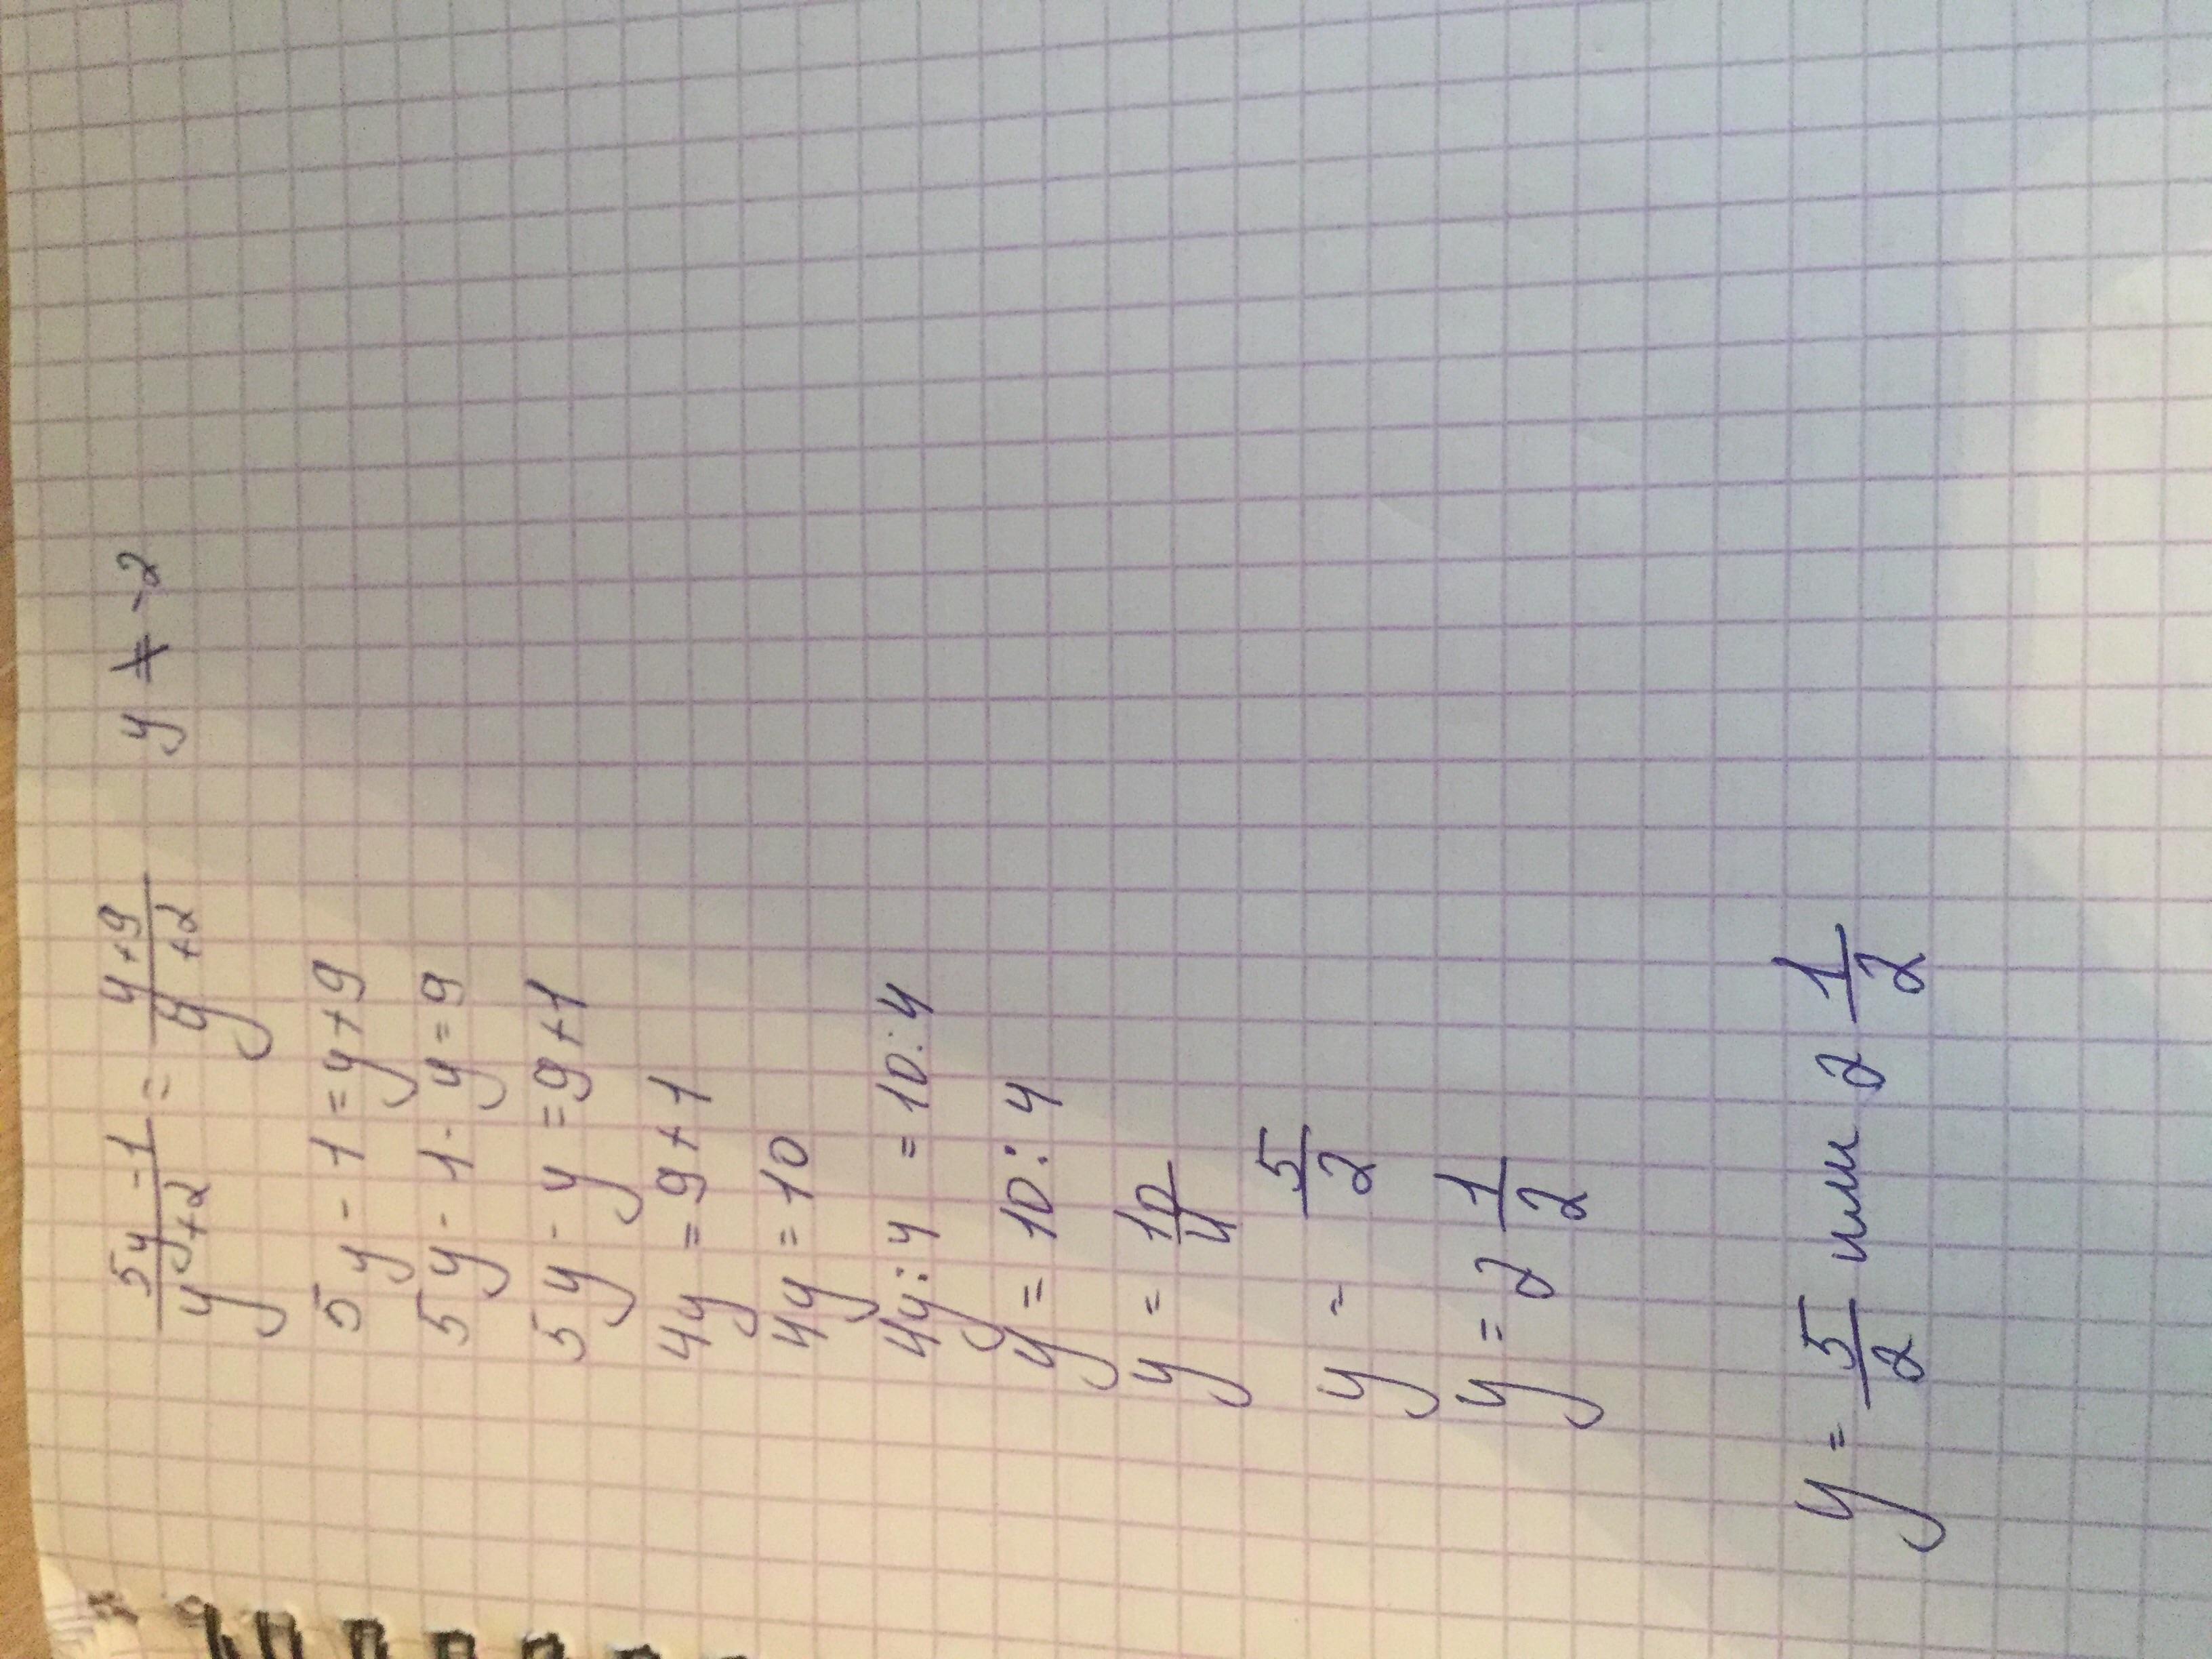 5y-1/y+2 = y+9/y+2    y ≠ -2
5y - 1 = y + 9
5y - 1 - y = 9
5y - y = 9 + 1
4y = 9 + 1
4y = 10
4y : 4 = 10 : 4
y = 10 : 4
y = 10/4
y = 5/2
y = 2 1/2
y = 5/2 или 2 1/2